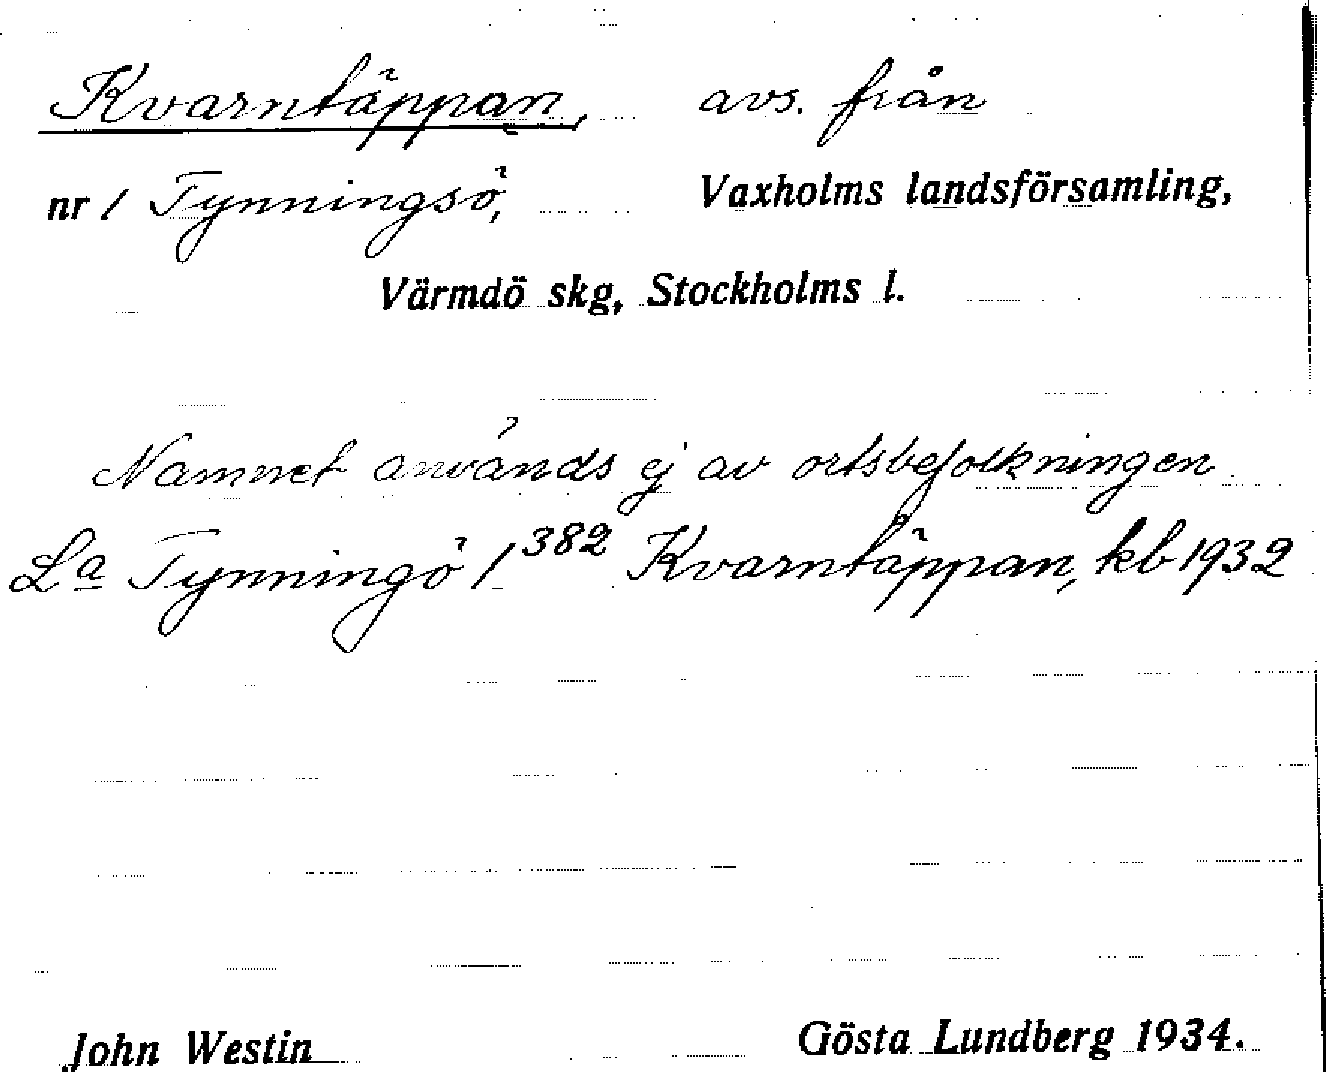 Kvarntäppan, avs. från
nr 1 Tynningsö, Vaxholms landsförsamling,
Värmdö skg, Stockholms l.
Namnet används ej av ortsbefolkningen.
La Tynningö 1 382 Kvarntäppan, kb 1932
John Westin Gösta Lundberg 1934.